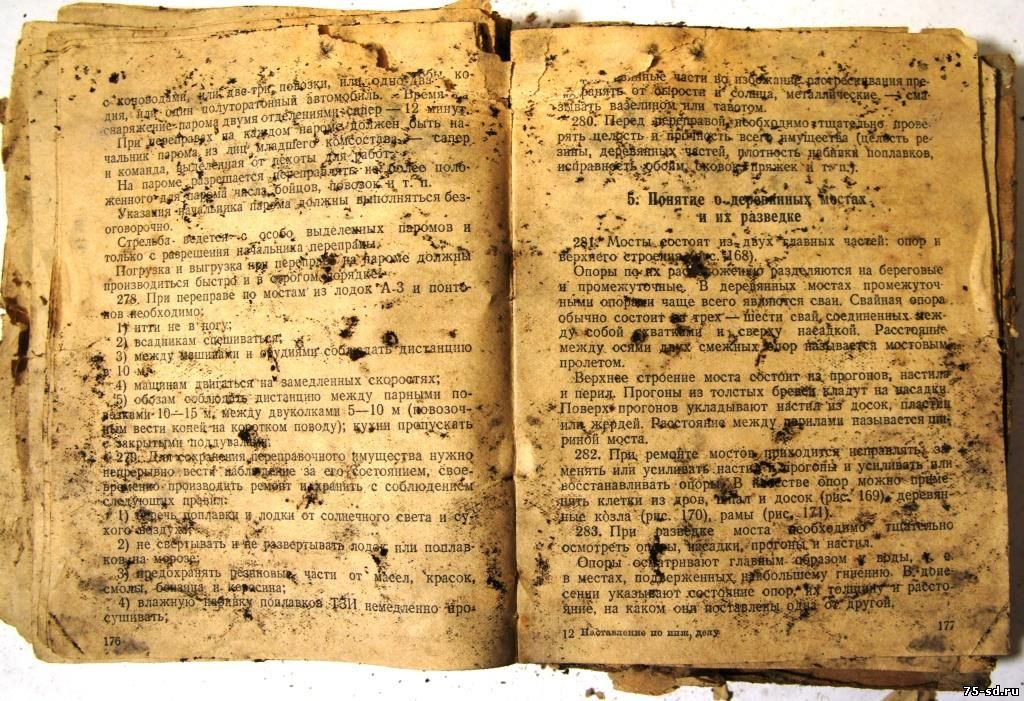 с коноводами, или две-три повозки, или одно-два
дия, или один полуторатонный автомобиль. Время
снаряжение парома двумя отделениями сапер — 12 минут.
При переправах на каждом пароме должен быть на-
чальник парома из лиц младшего комсостава — сапер
и команда, выделенная от пехоты для работ.
На пароме разрешается переправлять не более поло-
женного для парома числа бойцов, повозок и т. п.
Указания начальника парома должны выполняться без-
оговорочно.
Стрельба ведется с особо выделенных паромов и
только с разрешения начальника переправы.
Погрузка и выгрузка при переправе на пароме должны
производиться быстро и в строгом порядке.
278. При переправе по мостам из лодок А-3 и понто-
нов необходимо:
1) итти не в ногу;
2) всадникам спешиваться;
3) между машинами и орудиями соблюдать дистанцию
в 10 м;
4) машинам двигаться на замедленных скоростях;
5) обозам соблюдать дистанцию между парными по-
возками 10—15 м, между двуколками 5—10 м (повозоч-
ным вести коней на коротком поводу); кухни пропускать
с закрытыми поддувалами;
279. Для сохранения переправочного имущества нужно
непрерывно вести наблюдение за его состоянием, свое-
временно производить ремонт и хранить с соблюдением
следующих правил:
1) беречь поплавки и лодки от солнечного света и су-
хого воздуха;
2) не свертывать и не развертывать лодок или поплав-
ков на морозе;
3) предохранять резиновые части от масел, красок,
смолы, бензина и керосина;
4) влажную набивку поплавков ТЗИ немедленно про-
сушивать;
176
части во избежание растрескивания пре-
хранять от сырости и солнца, металлические — сма-
зывать вазелином или тавотом.
280. Перед переправой необходимо тщательно прове-
рять целость и прочность всего имущества (целость ре-
зины, деревянных частей, плотность набивки поплавков,
исправность обойм, оковок, пряжек и т. п.).
5. Понятие о деревянных мостах
и их разведке
281. Мосты состоят из двух главных частей: опор и
верхнего строения (рис. 168).
Опоры по их расположению разделяются на береговые
и промежуточные. В деревянных мостах промежуточ-
ными опорами чаще всего являются сваи. Свайная опора
обычно состоит из трех — шести свай, соединенных меж-
ду собой схватками и сверху насадкой. Расстояние
между осями двух смежных опор называется мостовым
пролетом.
Верхнее строение моста состоит из прогонов, настила
и перил. Прогоны из толстых бревен кладут на насадки.
Поверх прогонов укладывают настил из досок, пластин
или жердей. Расстояние между перилами называется ши-
риной моста.
282. При ремонте мостов приходится исправлять, за-
менять или усиливать настил и прогоны и усиливать или
восстанавливать опоры. В качестве опор можно приме-
нять клетки из дров, шпал и досок (рис. 169), деревян-
ные козла (рис. 170), рамы (рис. 171).
283. При разведке моста необходимо тщательно
осмотреть опоры, насадки, прогоны и настил.
Опоры осматривают главным образом у воды, т. е.
в местах, подверженных наибольшему гниению. В доне-
сении указывают состояние опор, их толщину и рассто-
яние, на каком они поставлены одна от другой.
12 Наставление по инж. делу
177
75-sd.ru